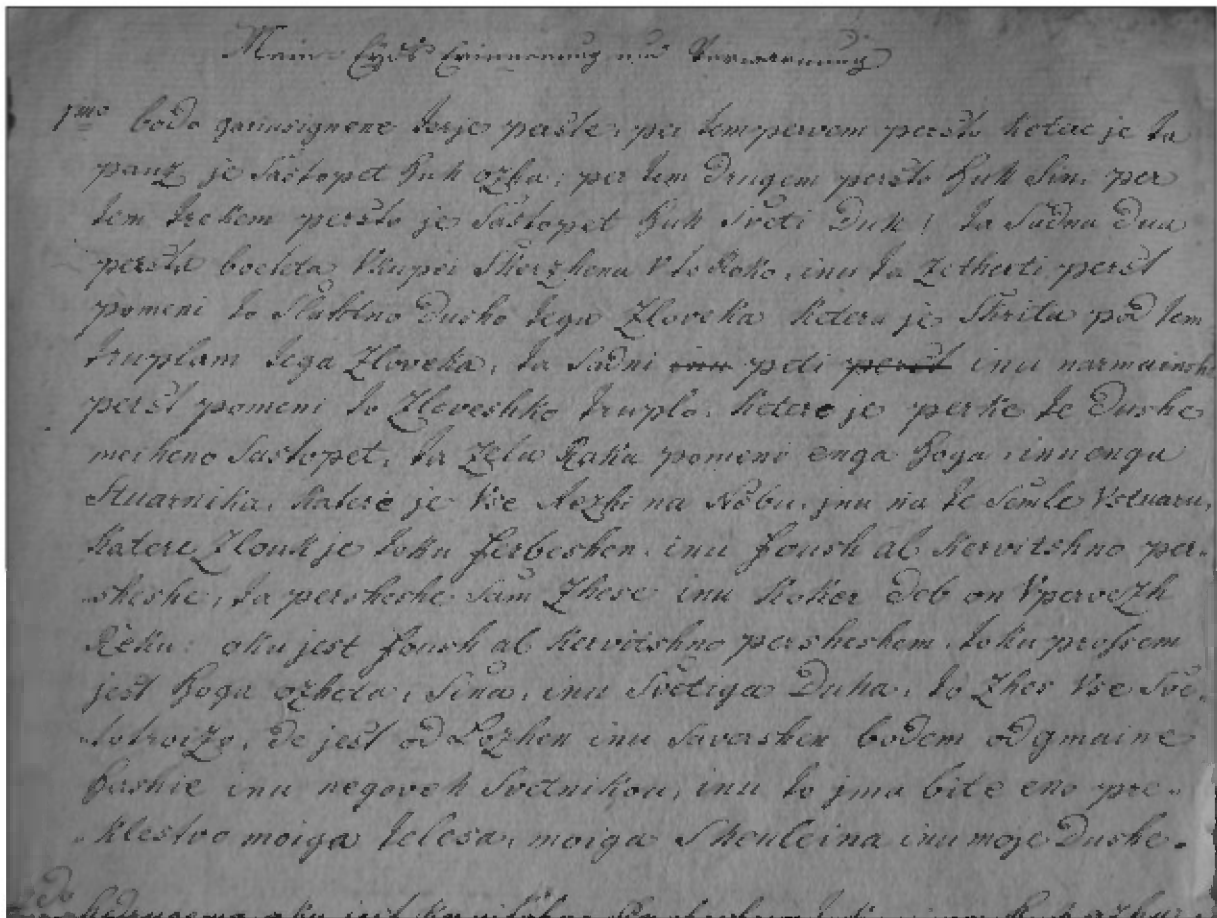 Mein-Eyds Erinnerung und Verwarnung
1mo bodo gariusignene terje perste, per tem pervem persto kotere je ta
pauz je Sastopet Guh ozha, per tem drugem persto Guh Sin, per
tem trekem persto je Sastopet Guh Sveti Duh! ta Sadna dua
persta boeleta Vkupei Skerzhena V to Roko, inu ta Zetherti perst
pomeni to Slahtno Dusho tega Zloveka katera je Skrita pod tem
truplam tega Zloveka, ta Sadni inu peti perst inu narmainshi
perst pomeni to Zloveshko truplo, katero je perke te Dushe
meiheno Sastopet, ta Zela Roka pomeni enga Goga, inu enga
Stuarnika, katere je Vse Rezhi na Nebu, jnu na te Semle Vstuaru,
katere Zlouk je toku ferbeshen, inu foush al kervitshno per-
sheshe, ta persheshe Sam Zhese inu koker deb on Vpervezh
Reku: aku jest foush al kervitshno persheshem, toku prossem
jest Goga ozheta, Sina, inu Svetiga Duha, to Zhes Vse Sve-
totroizo, de jest od Lozhen inu Savershen bodem od gmaine
Gashie inu negoveh Svetnikou, inu to jma bite eno pre-
klestvo moiga telesa, moiga Shouleina inu moje Dushe.